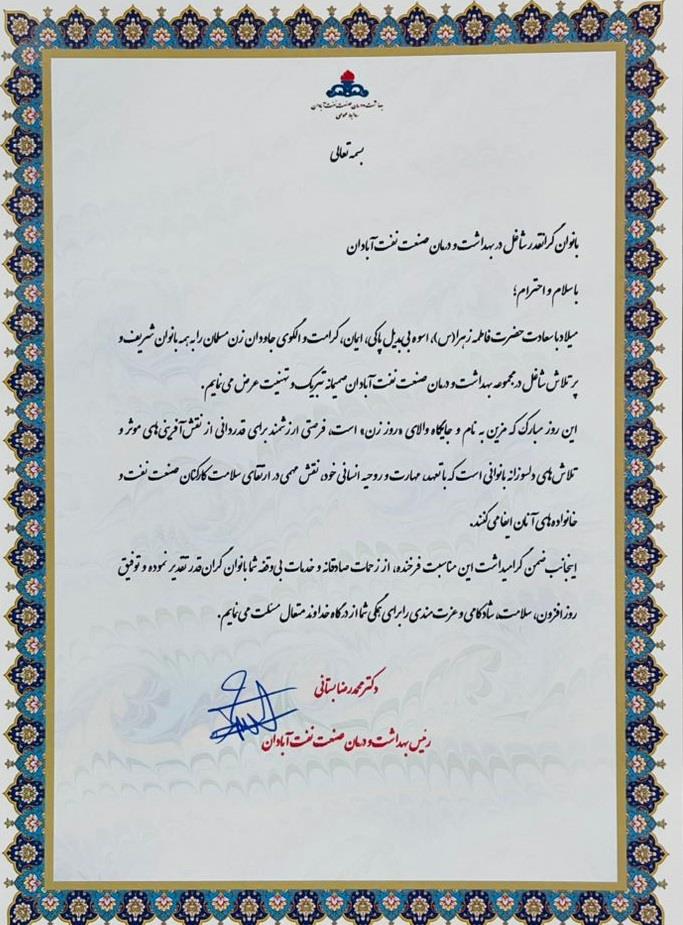 بهداشت و درمان صنعت نفت آبادان
روابط عمومی
بسمه تعالی
بانوان گرانقدر شاغل در بهداشت و درمان صنعت نفت آبادان
با سلام و احترام؛
میلاد باسعادت حضرت فاطمه زهرا(س)، اسوه بی‌بدیل پاکی، ایمان، کرامت و الگوی جاودان زن مسلمان را به همه بانوان شریف و
پرتلاش شاغل در مجموعه بهداشت و درمان صنعت نفت آبادان صمیمانه تبریک و تهنیت عرض می نمایم.
این روز مبارک که مزین به نام و جایگاه والای «روز زن» است، فرصتی ارزشمند برای قدردانی از نقش‌آفرینی‌های موثر و
تلاش‌های دلسوزانه بانوانی است که با تعهد، مهارت و روحیه انسانی خود، نقش مهمی در ارتقای سلامت کارکنان صنعت نفت و
خانواده‌های آنان ایفا می‌کنند.
اینجانب ضمن گرامیداشت این مناسبت فرخنده، از زحمات صادقانه و خدمات بی‌وقفه شما بانوان گران‌قدر تقدیر نموده و توفیق
روز افزون، سلامت، شادکامی و عزت‌مندی را برای همگی شما از درگاه خداوند متعال مسئلت می‌نمایم.
دکتر محمدرضا بستانی
رئیس بهداشت و درمان صنعت نفت آبادان